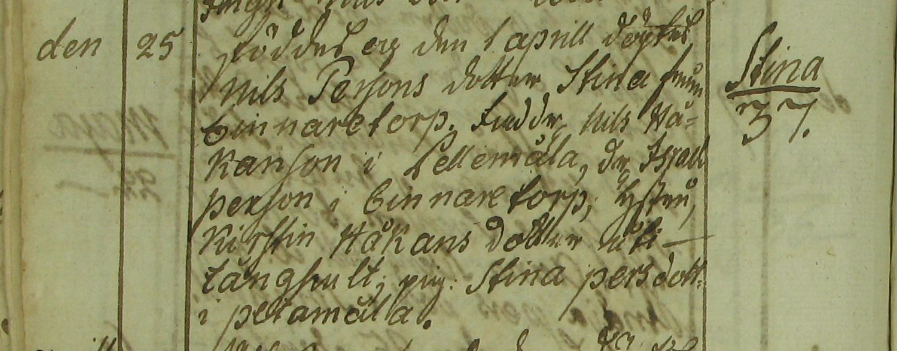 den 25 föddes og den 1 aprill döptes
Nils Persons dotter Stina från
Ginnaretorp. Faddr. Nils Hå-
kanson i Pellemåla, dr. Israel
person i Ginnaretorp; hustru,
Kirstin Håkans dotter uti
långhult; pig: Stina pers dott:
i petamåla.
Stina
37.